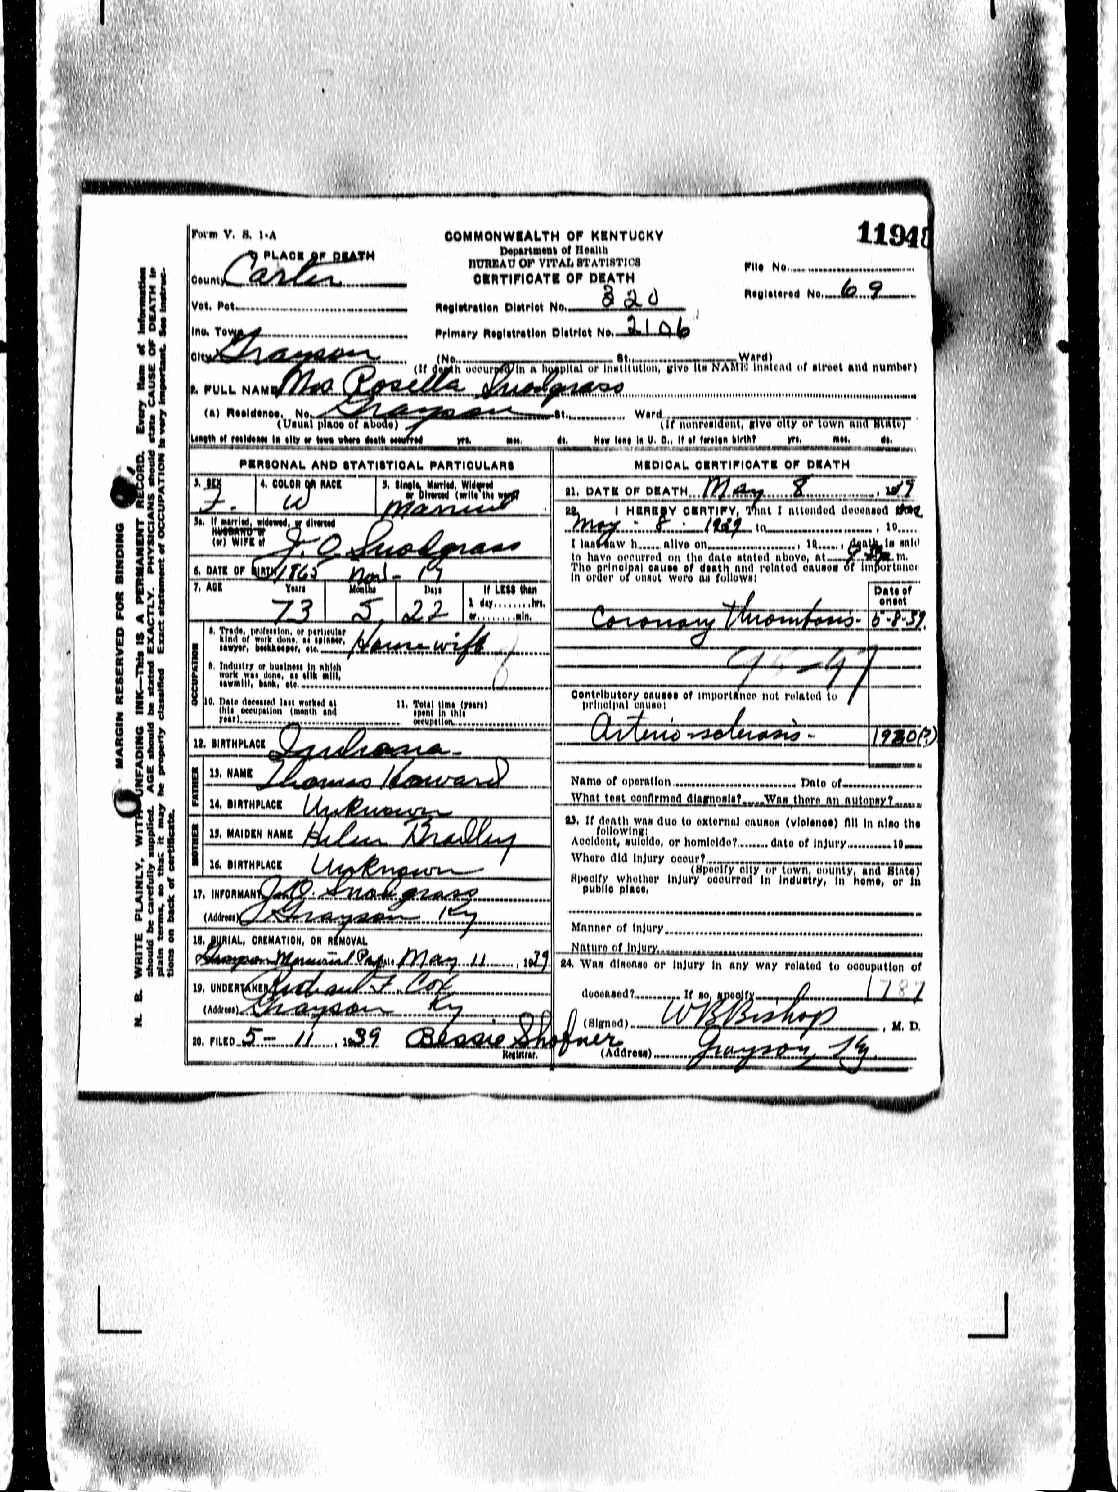 Form V. S. 1-A
COMMONWEALTH OF KENTUCKY
Department of Health
BUREAU OF VITAL STATISTICS
CERTIFICATE OF DEATH
1194
1. PLACE OF DEATH
County Carter
File No.
Registered No. 69
Vot. Pct.
Registration District No. 320
Inc. Town
Primary Registration District No. 2106
City Grayson (No. St. Ward)
(If death occurred in a hospital or institution, give its NAME instead of street and number)
2. FULL NAME Mrs Rosella Snodgrass
(a) Residence. No. Grayson St. Ward
(Usual place of abode) (If nonresident, give city or town and State)
Length of residence in city or town where death occurred yrs. mos. ds. How long in U. S., if of foreign birth? yrs. mos. ds.
PERSONAL AND STATISTICAL PARTICULARS
3. SEX 4. COLOR OR RACE 5. Single, Married, Widowed
or Divorced (write the word)
F. W Married
5a. If married, widowed, or divorced
HUSBAND of
(or) WIFE of J. O. Snodgrass
6. DATE OF BIRTH 1865 Nov - 17
7. AGE Years Months Days If LESS than
1 day hrs.
or min.
73 5 22
OCCUPATION
8. Trade, profession, or particular
kind of work done, as spinner,
sawyer, bookkeeper, etc. Housewife
9. Industry or business in which
work was done, as silk mill,
sawmill, bank, etc.
10. Date deceased last worked at
this occupation (month and
year)
11. Total time (years)
spent in this
occupation
12. BIRTHPLACE Indiana
FATHER
13. NAME Thomas Howard
14. BIRTHPLACE Unknown
MOTHER
15. MAIDEN NAME Helen Bradley
16. BIRTHPLACE Unknown
17. INFORMANT J.O. Snodgrass
(Address) Grayson Ky
18. BURIAL, CREMATION, OR REMOVAL
Grayson Memorial Park May 11, 1939
19. UNDERTAKER F. Cox
(Address) Grayson Ky
20. FILED 5-11, 1939 Bessie Shofner
Registrar.
MEDICAL CERTIFICATE OF DEATH
21. DATE OF DEATH May 8, 1939
22. I HEREBY CERTIFY, That I attended deceased
May - 8 - 1939 to , 19
I last saw h alive on , 19 , death is said
to have occurred on the date stated above, at m.
The principal cause of death and related causes of importance
in order of onset were as follows:
Date of
onset
Coronary Thrombosis - 5-8-39
94-97
Contributory causes of importance not related to
principal cause:
Arterio-sclerosis - 1930(?)
Name of operation Date of
What test confirmed diagnosis? Was there an autopsy?
23. If death was due to external causes (violence) fill in also the
following:
Accident, suicide, or homicide? date of injury 19
Where did injury occur?
(Specify city or town, county, and State)
Specify whether injury occurred in industry, in home, or in
public place.
Manner of injury
Nature of injury
24. Was disease or injury in any way related to occupation of
deceased? If so, specify 1787
(Signed) W B Bishop, M. D.
(Address) Grayson, Ky.
MARGIN RESERVED FOR BINDING
N. B. WRITE PLAINLY, WITH UNFADING INK—THIS IS A PERMANENT RECORD. Every item of information
should be carefully supplied. AGE should be stated EXACTLY. PHYSICIANS should state CAUSE OF DEATH in
plain terms, so that it may be properly classified. Exact statement of OCCUPATION is very important. See instruc-
tions on back of certificate.